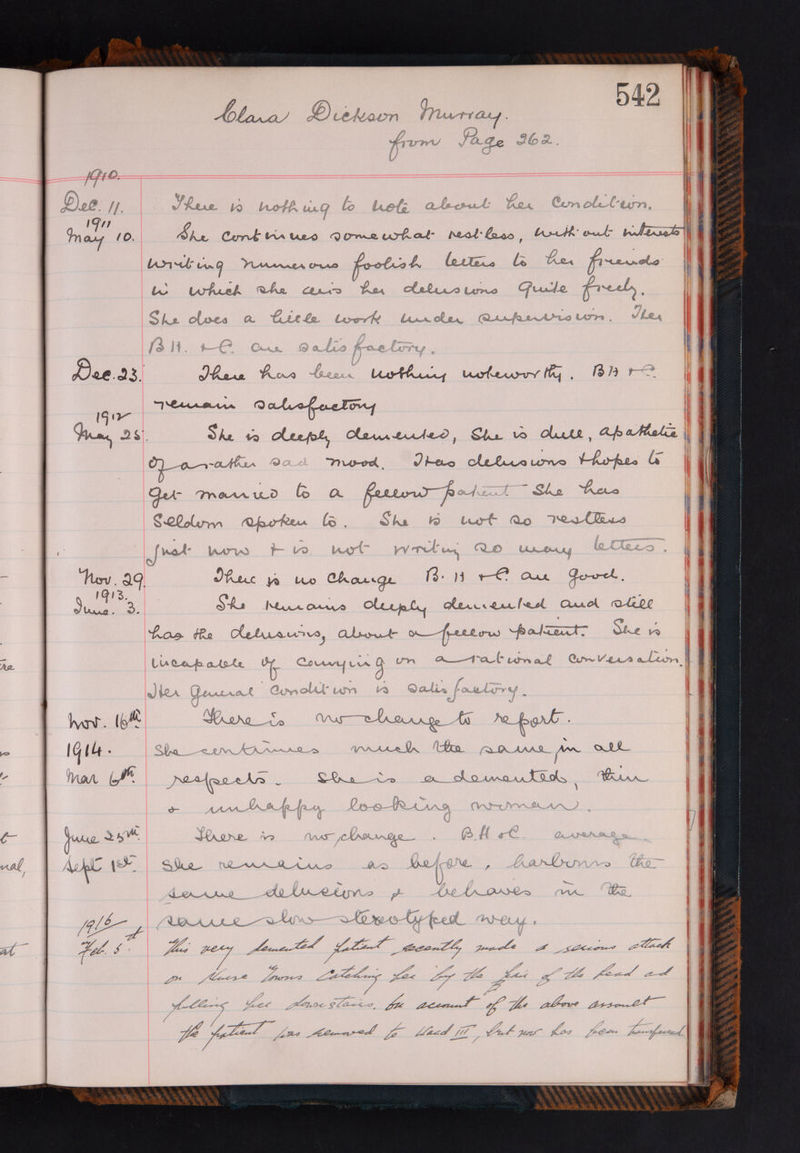 542
Clara Dickson Murray.
from Page 362.
1910.
Dec. 11. There is nothing to note about her Condition.
1911
May 10. She Continues somewhat restless, without interests
writing numerous foolish letters to her friends
in which she airs her delusions quite freely.
She does a little work under supervision. Her
B H. & C. are satisfactory.
Dec. 23. There has been nothing noteworthy. B H & C.
remain satisfactory
1912
May 25. She is deeply demented, She is dull, apathetic
& of a rather sad mood. Has delusions & hopes to
get married to a fellow patient She has
Seldom spoken to. She is not so restless
just now & is not writing so many letters.
Nov. 29. There is no Change B. H & C. are good.
1913.
June. 3. She remains deeply demented and still
has the delusions, about a fellow patient. She is
incapable of carrying on a rational Conversation.
Her General Condition is satisfactory.
Nov. 16th There is no change to report.
1914. She continues much the same in all
Mar 6th respects. She is a demented, thin
& unhappy looking woman.
June 25th There is no change. B.H & C. average.
Sept 1st She remains as before, harbours the
same delusions & behaves in the
same slow stereotyped way.
1916
Feb. 5th This very demented patient recently made a serious attack
on Nurse catching her by the hair of the head and
pulling her downstairs. On account of the above assault
the patient was removed to Ward III, but now has been transferred
nal,
at